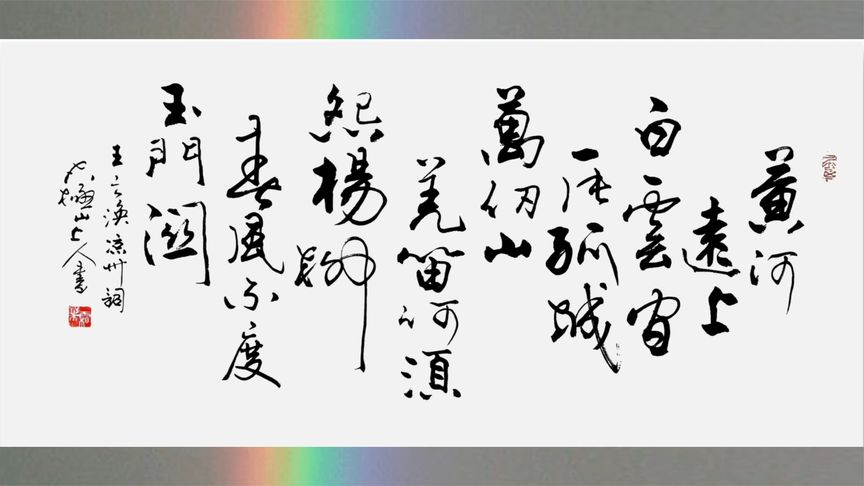 黃河
遠上
白雲間
一片孤城
萬仞山
羌笛何須
怨楊柳
春風不度
玉門關
王之渙凉州詞
山上人書